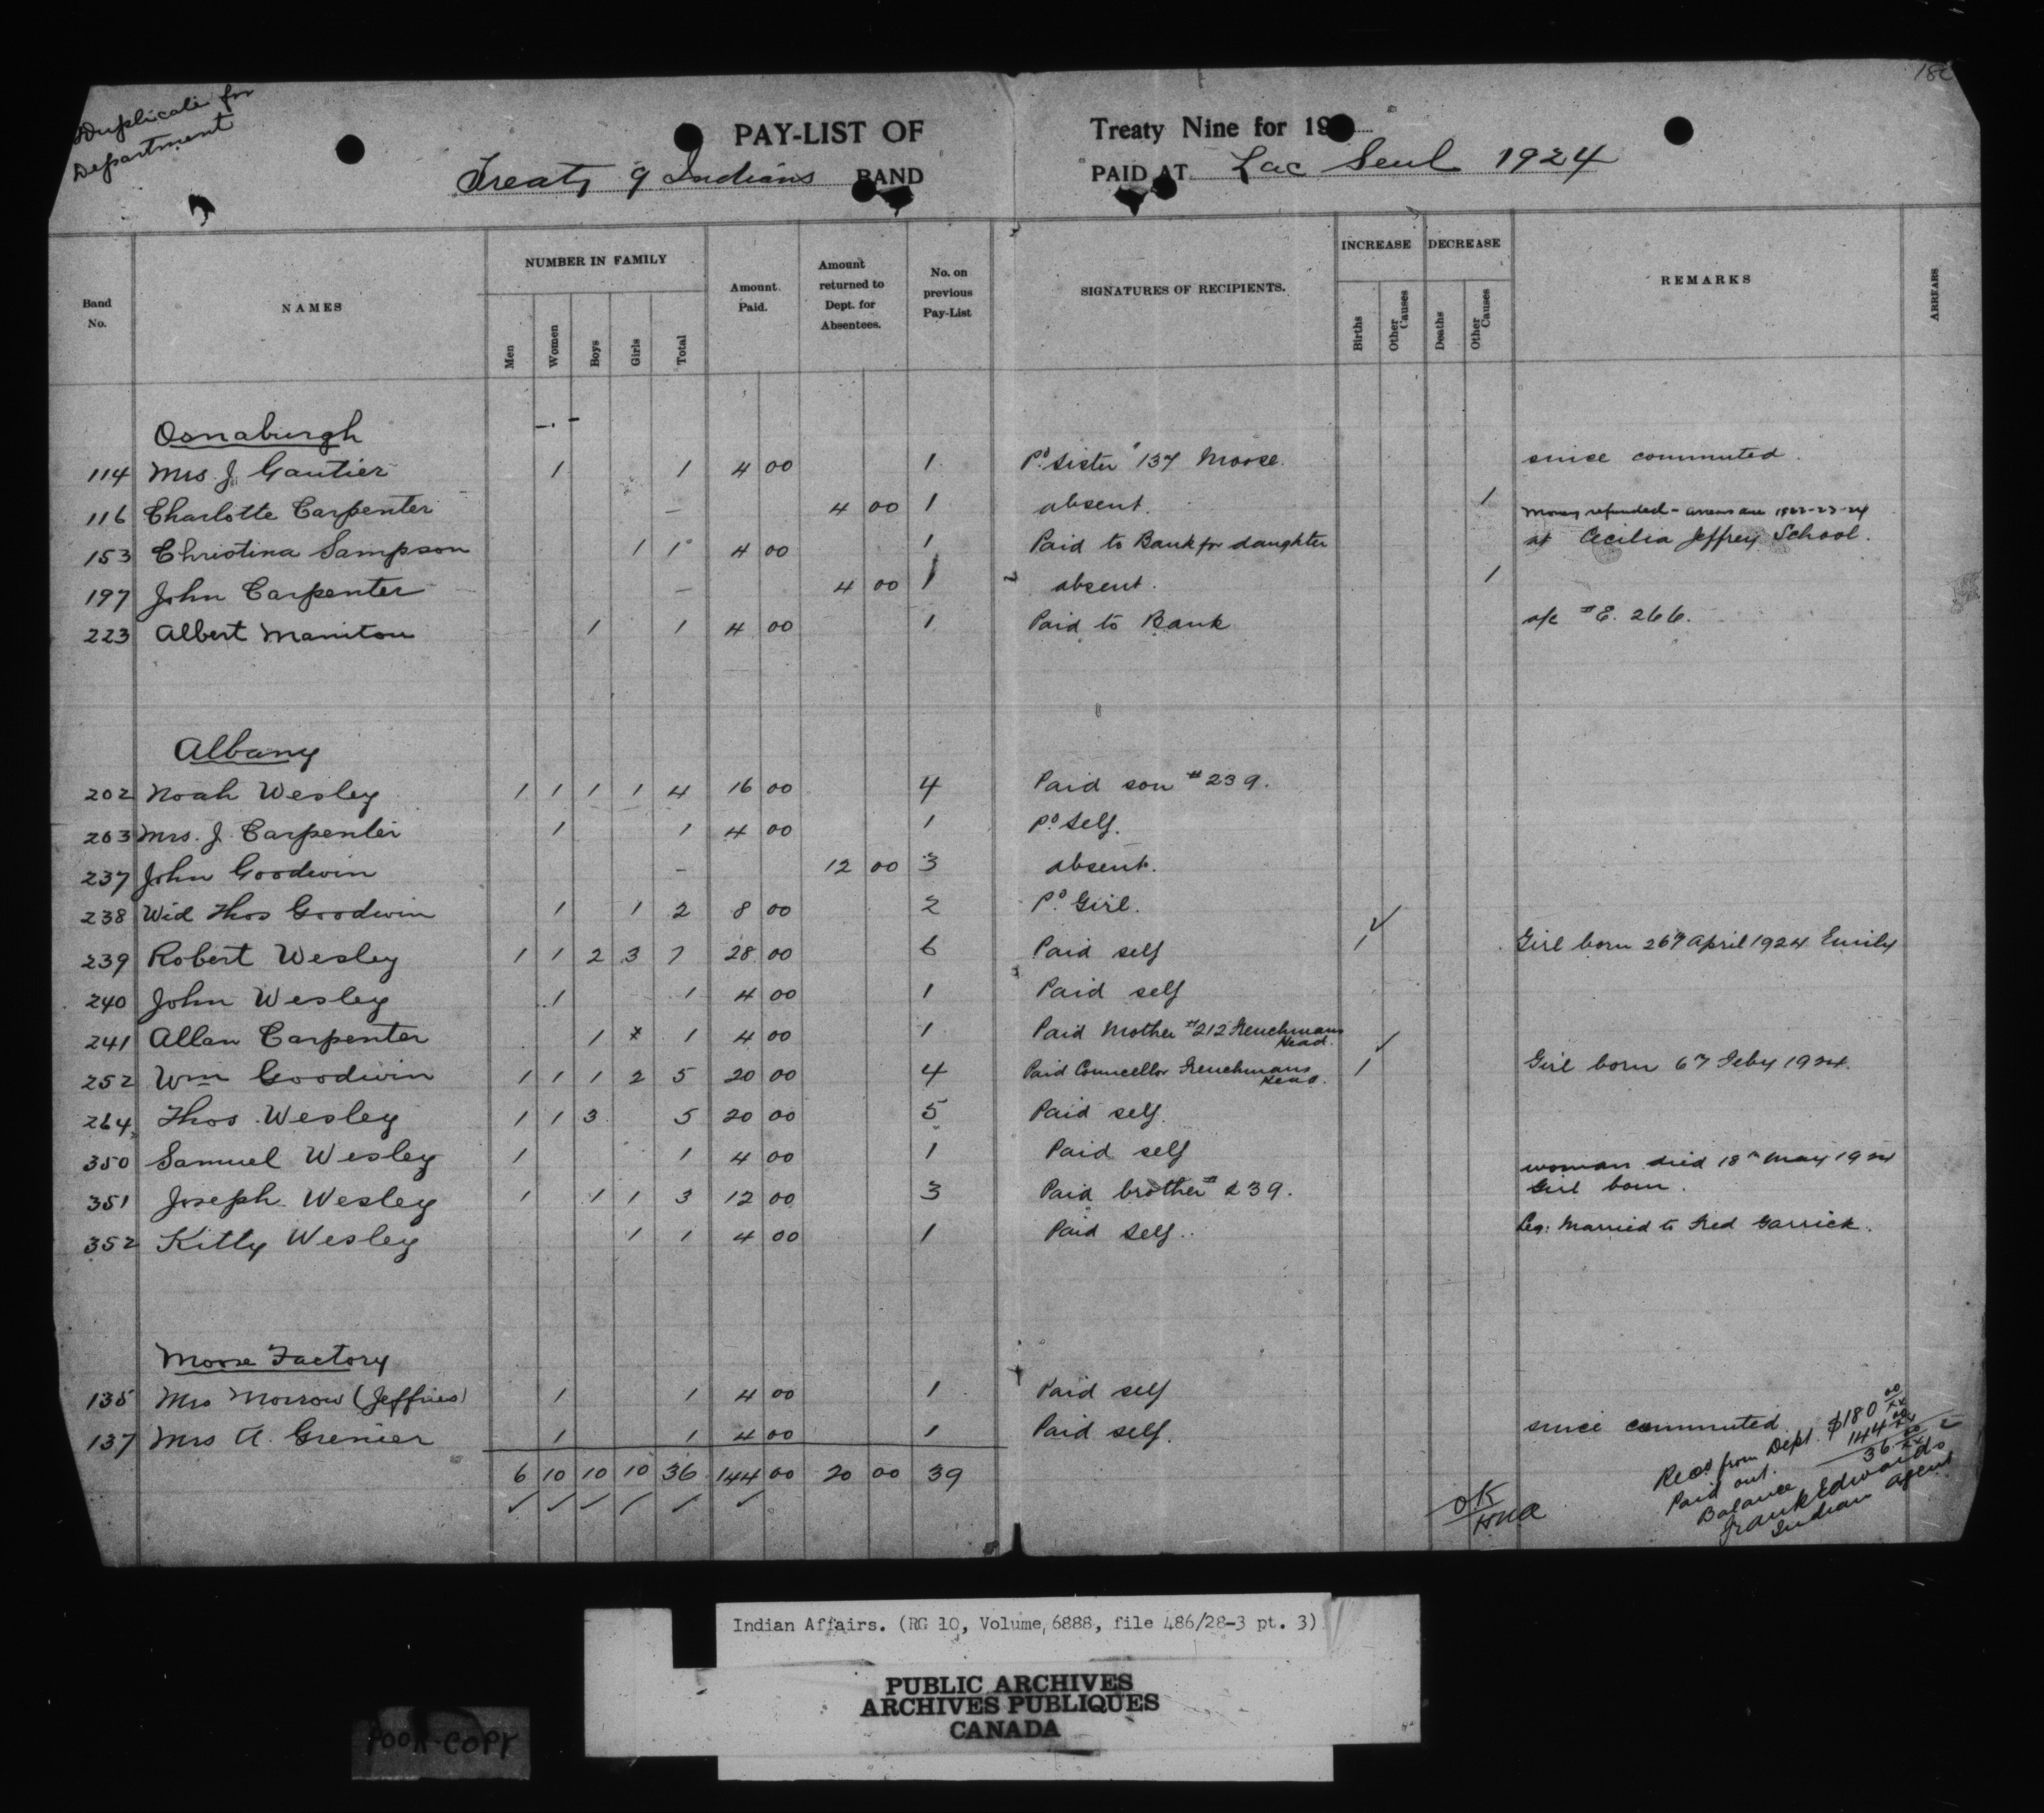 Duplicate for
Department
PAY-LIST OF
Treaty 9 Indians BAND
Treaty Nine for 19
PAID AT Lac Seul 1924
Band No.
NAMES
NUMBER IN FAMILY
Men Women Boys Girls Total
Amount Paid.
Amount returned to Dept. for Absentees.
No. on previous Pay-List
SIGNATURES OF RECIPIENTS.
INCREASE
Births Other Causes
DECREASE
Deaths Other Causes
REMARKS
ARREARS
Osnaburgh
114 Mrs. J. Gautier 1 1 4 00 1 Pd sister # 137 Moose. since commuted.
116 Charlotte Carpenter — 4 00 1 absent. 1 Money refunded - arrears are 1922-23-24
153 Christina Sampson 1 1 4 00 1 Paid to Bank for daughter at Cecilia Jeffrey School.
197 John Carpenter — 4 00 1 absent. 1
223 Albert Manitou 1 1 4 00 1 Paid to Bank a/c # E. 266.
Albany
202 Noah Wesley 1 1 1 1 4 16 00 4 Paid son # 239.
203 Mrs. J. Carpenter 1 1 4 00 1 Pd Self.
237 John Goodwin — 12 00 3 absent.
238 Wid Thos Goodwin 1 1 2 8 00 2 Pd Girl.
239 Robert Wesley 1 1 2 3 7 28 00 6 Paid self 1 ✓ Girl born 26th April 1924 Emily
240 John Wesley 1 1 4 00 1 Paid self
241 Allan Carpenter 1 x 1 4 00 1 Paid Mother # 212 Frenchmans Head.
252 Wm Goodwin 1 1 1 2 5 20 00 4 Paid Councellor Frenchmans Head. 1 ✓ Girl born 6th Feby 1924.
264 Thos. Wesley 1 1 3 5 20 00 5 Paid self.
350 Samuel Wesley 1 1 4 00 1 Paid self
woman died 18th May 1924
351 Joseph Wesley 1 1 1 3 12 00 3 Paid brother # 239. Girl born.
352 Kitty Wesley 1 1 4 00 1 Paid Self. Married to Fred Garrick.
Moose Factory
135 Mrs Morrow (Jeffries) 1 1 4 00 1 Paid self
137 Mrs A. Grenier 1 1 4 00 1 Paid self. since commuted
6 10 10 10 36 144 00 20 00 39
✓ ✓ ✓ ✓ ✓ ✓
OK
Recd from Dept. $180 00
Paid out. 144 00
Balance 36 00
Frank Edwards
Indian Agent
Indian Affairs. (RG 10, Volume 6888, file 486/28-3 pt. 3)
PUBLIC ARCHIVES
ARCHIVES PUBLIQUES
CANADA
POOR COPY